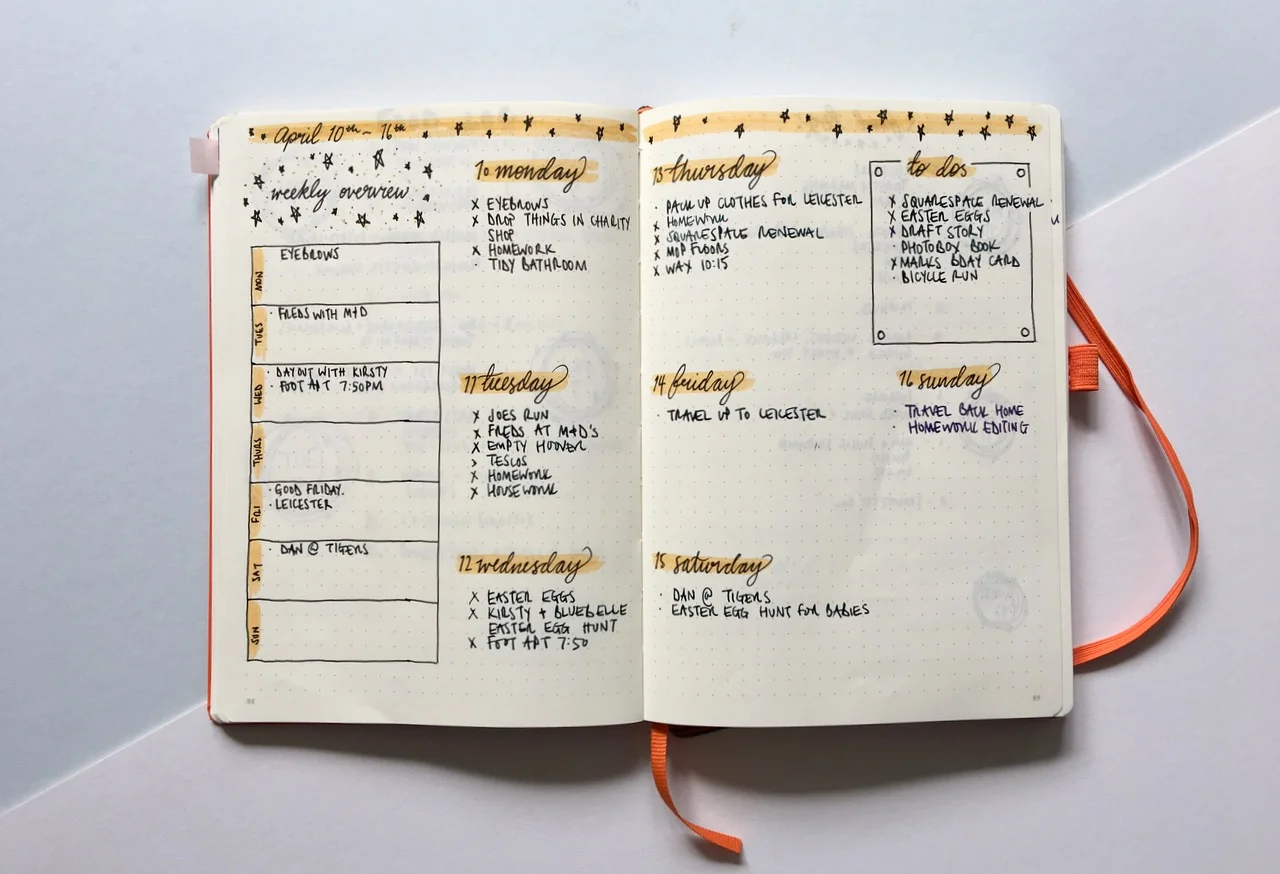 April 10th - 16th
weekly overview
MON
EYEBROWS
TUES
· FREDS WITH M+D
WED
· DAY OUT WITH KIRSTY
· FOOT APT 7:50PM
THURS
FRI
· GOOD FRIDAY.
· LEICESTER
SAT
· DAN @ TIGERS
SUN
10 monday
X EYEBROWS
X DROP THINGS IN CHARITY
SHOP
X HOMEWORK
· TIDY BATHROOM
11 tuesday
X JOES RUN
X FREDS AT M+D'S
X EMPTY HOOVER
> TESCOS
X HOMEWORK
X HOUSEWORK
12 wednesday
X EASTER EGGS
X KIRSTY + BLUEBELLE
EASTER EGG HUNT
X FOOT APT 7:50
13 thursday
· PACK UP CLOTHES FOR LEICESTER
X HOMEWORK
X SQUARESPACE RENEWAL
X MOP FLOORS
X WAX 10:15
to dos
X SQUARESPACE RENEWAL
X EASTER EGGS
X DRAFT STORY
· PHOTOBOX BOOK
X MARKS BDAY CARD
· BICYCLE RUN
14 friday
· TRAVEL UP TO LEICESTER
16 sunday
· TRAVEL BACK HOME
· HOMEWORK EDITING
15 saturday
· DAN @ TIGERS
· EASTER EGG HUNT FOR BABIES
88
89